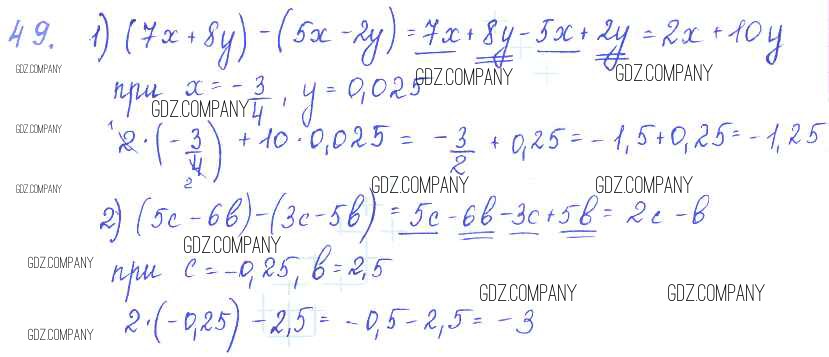 49. 1) (7x + 8y) - (5x - 2y) = 7x + 8y - 5x + 2y = 2x + 10y
GDZ.COMPANY GDZ.COMPANY GDZ.COMPANY
при x = - 3/4, y = 0,025
GDZ.COMPANY
GDZ.COMPANY
2 · (- 3/4) + 10 · 0,025 = - 3/2 + 0,25 = - 1,5 + 0,25 = - 1,25
1 2
GDZ.COMPANY GDZ.COMPANY GDZ.COMPANY
2) (5c - 6b) - (3c - 5b) = 5c - 6b - 3c + 5b = 2c - b
GDZ.COMPANY
GDZ.COMPANY
при c = - 0,25, b = 2,5
GDZ.COMPANY GDZ.COMPANY
2 · (- 0,25) - 2,5 = - 0,5 - 2,5 = - 3
GDZ.COMPANY